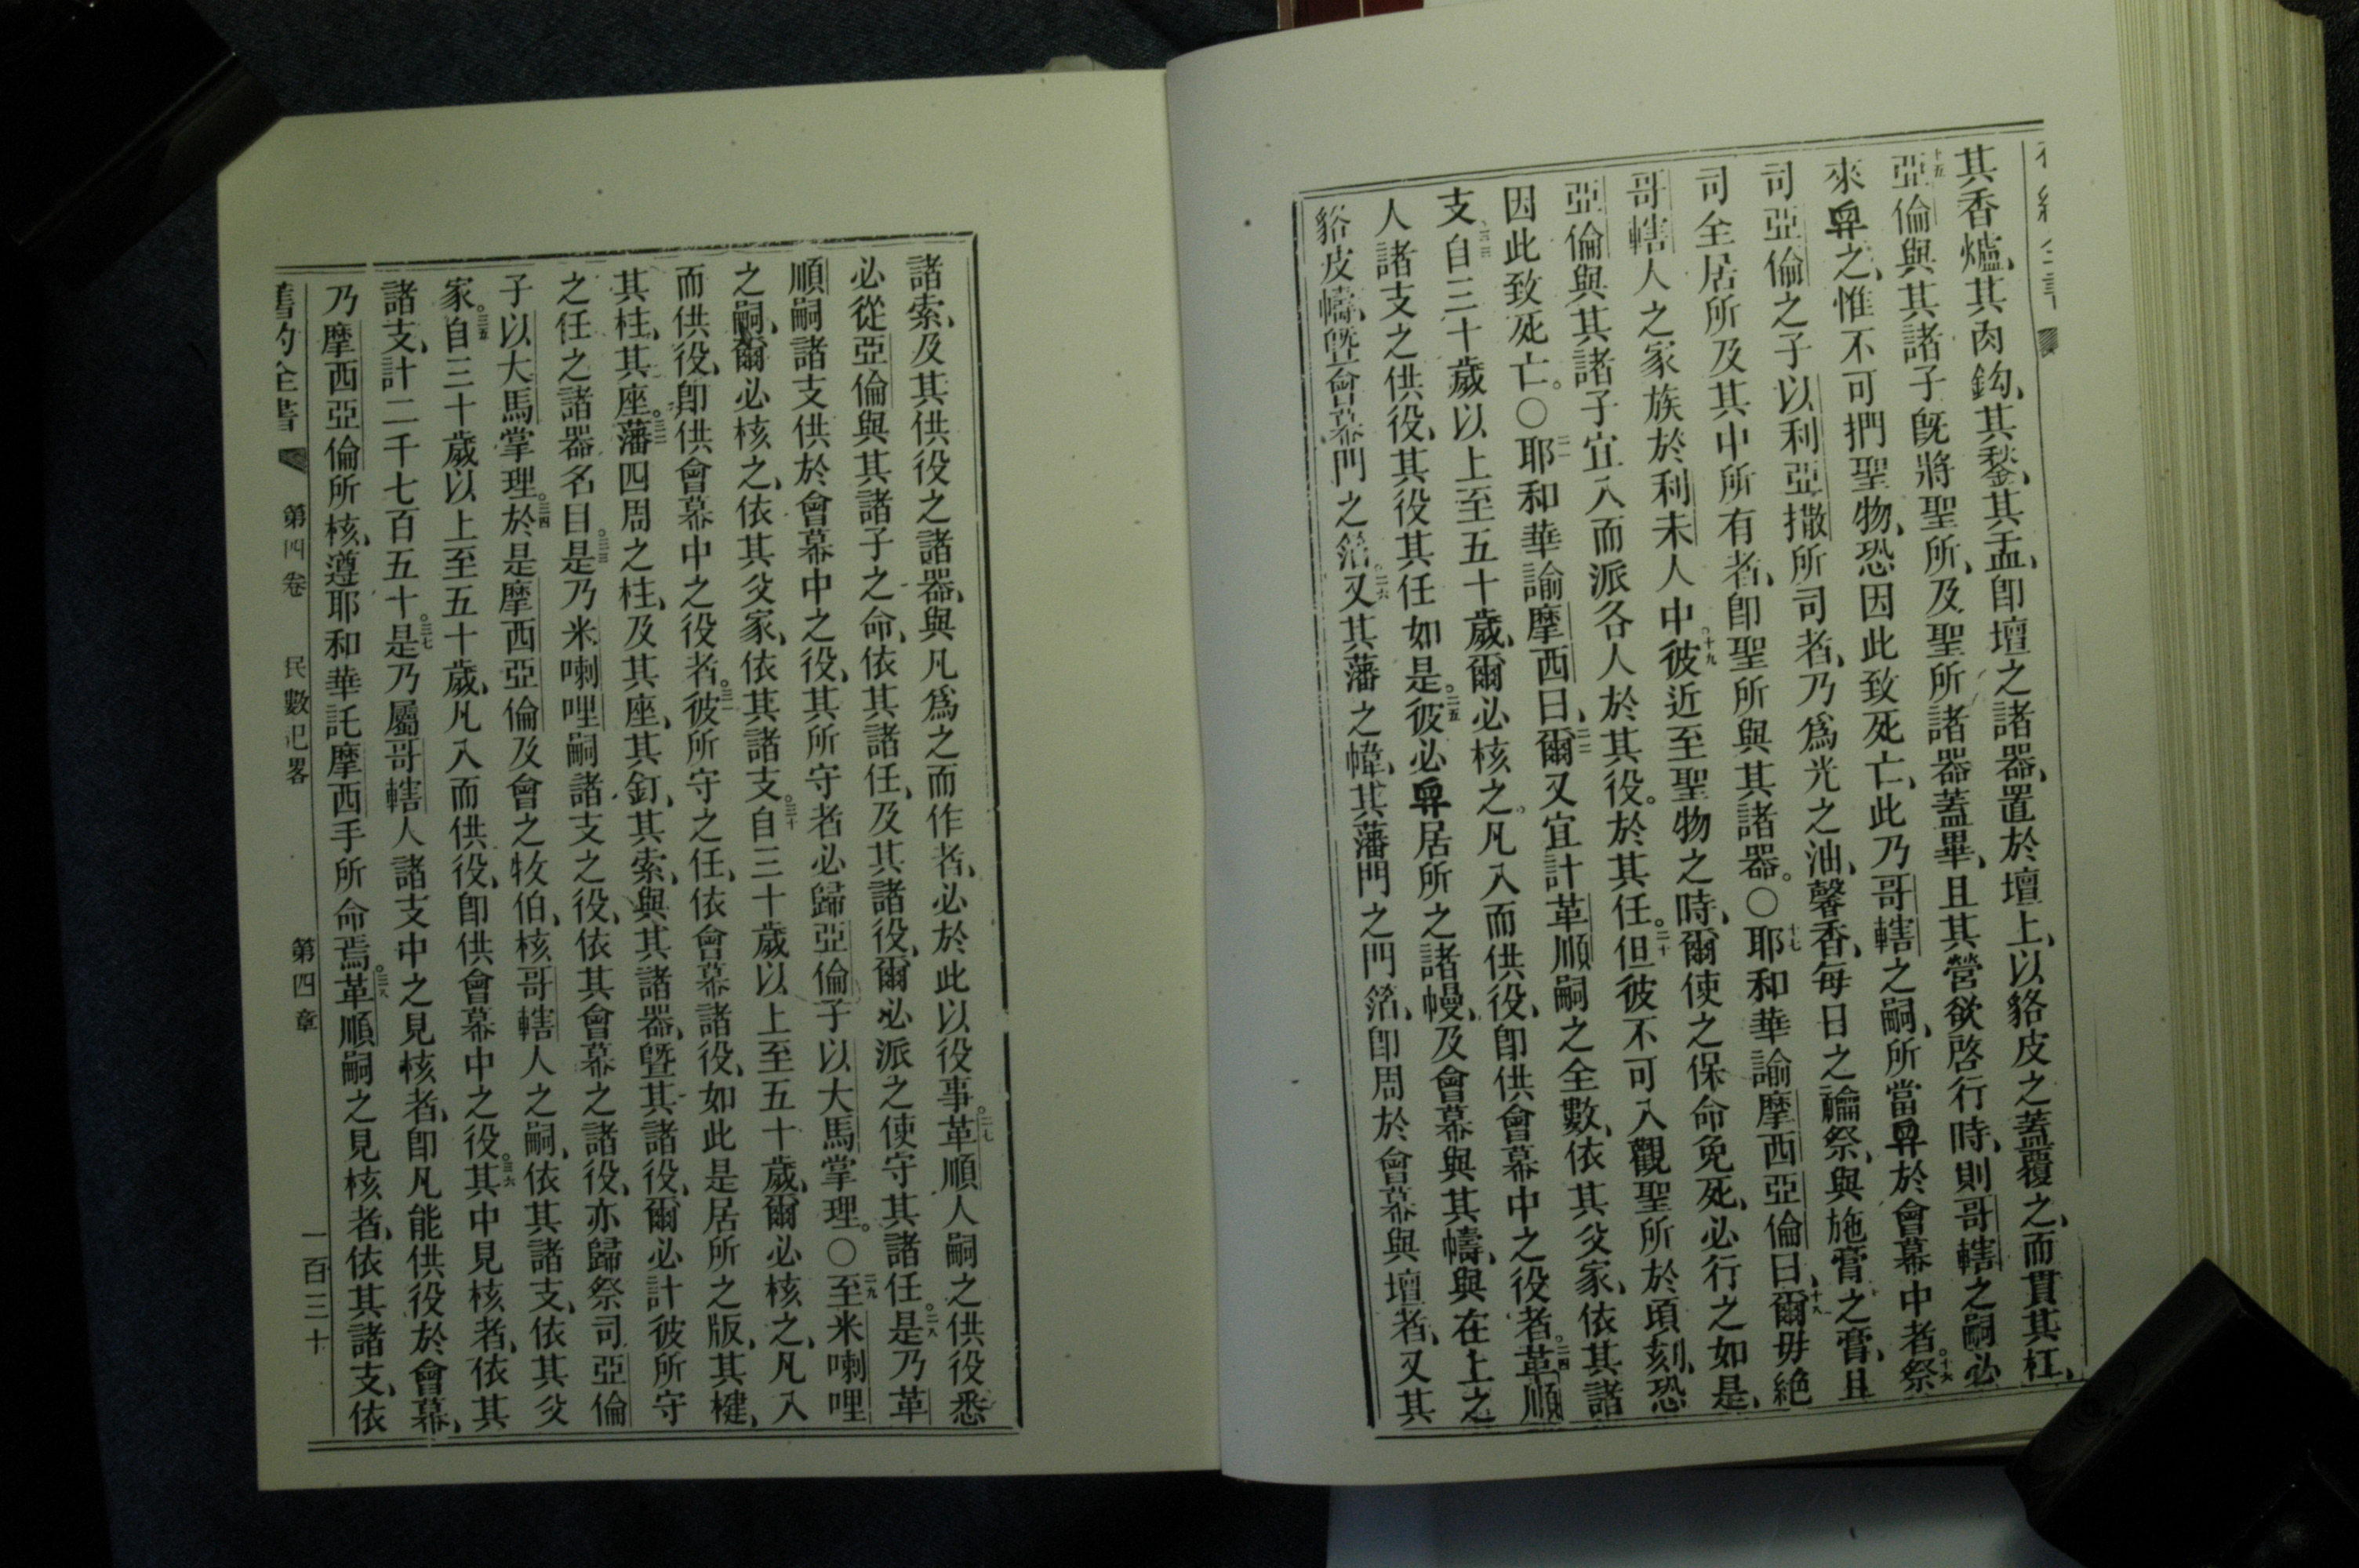 其香爐、其肉鈎、其鍫、其盂、卽壇之諸器、置於壇上、以貉皮之蓋覆之、而貫其杠、
十五亞倫與其諸子旣將聖所、及聖所諸器蓋畢、且其營欲啓行時、則哥轄之嗣必
來舁之、惟不可捫聖物、恐因此致死亡、此乃哥轄之嗣、所當舁於會幕中者。十六祭
司亞倫之子以利亞撒所司者、乃爲光之油、馨香、每日之禴祭、與施膏之膏、且
司全居所及其中所有者、卽聖所與其諸器。○十七耶和華諭摩西亞倫曰、十八爾毋絕
哥轄人之家族於利未人中、十九彼近至聖物之時、爾使之保命免死、必行之如是、
亞倫與其諸子宜入而派各人於其役。於其任。二十但彼不可入觀聖所於頃刻、恐
因此致死亡。○二一耶和華諭摩西曰、二二爾又宜計革順嗣之全數、依其父家、依其諸
支、二三自三十歲以上至五十歲、爾必核之。凡入而供役、卽供會幕中之役者。二四革順
人諸支之供役、其役其任如是。二五彼必舁居所之諸幔、及會幕與其幬、與在上之
貉皮幬、曁會幕門之箔。二六又其藩之幃、其藩門之門箔、卽周於會幕與壇者、又其
諸索、及其供役之諸器、與凡爲之而作者、必於此以役事。二七革順人嗣之供役悉
必從亞倫與其諸子之命、依其諸任、及其諸役、爾必派之使守其諸任。二八是乃革
順嗣諸支供於會幕中之役、其所守者必歸亞倫子以大馬掌理。○二九至米喇哩
之嗣、爾必核之、依其父家、依其諸支。三十自三十歲以上至五十歲、爾必核之、凡入
而供役、卽供會幕中之役者。三一彼所守之任、依會幕諸役、如此是居所之版、其楗、
其柱、其座。三二藩四周之柱、及其座、其釘、其索、與其諸器、曁其諸役、爾必計彼所守
之任之諸器名目。三三是乃米喇哩嗣諸支之役、依其會幕之諸役、亦歸祭司亞倫
子以大馬掌理。三四於是摩西亞倫及會之牧伯、核哥轄人之嗣、依其諸支、依其父
家。三五自三十歲以上至五十歲、凡入而供役、卽供會幕中之役。三六其中見核者、依其
諸支、計二千七百五十。三七是乃屬哥轄人諸支中之見核者、卽凡能供役於會幕、
乃摩西亞倫所核、遵耶和華託摩西手所命焉。三八革順嗣之見核者、依其諸支、依
舊約全書 第四卷 民數記畧 第四章 一百三十